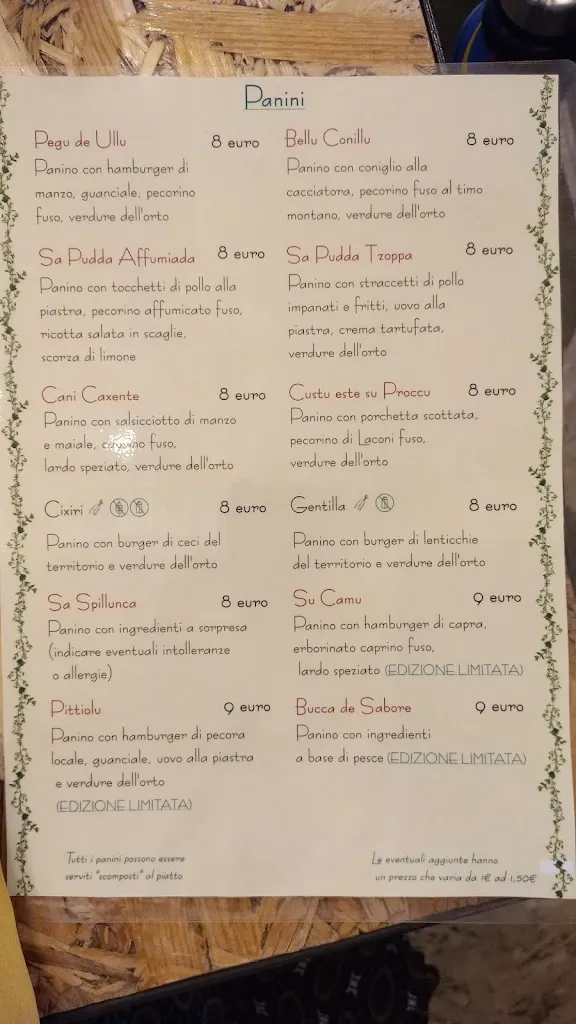 Panini
Pegu de Ullu 8 euro
Panino con hamburger di
manzo, guanciale, pecorino
fuso, verdure dell'orto
Bellu Conillu 8 euro
Panino con coniglio alla
cacciatora, pecorino fuso al timo
montano, verdure dell'orto
Sa Pudda Affumiada 8 euro
Panino con tocchetti di pollo alla
piastra, pecorino affumicato fuso,
ricotta salata in scaglie,
scorza di limone
Sa Pudda Tzoppa 8 euro
Panino con straccetti di pollo
impanati e fritti, uovo alla
piastra, crema tartufata,
verdure dell'orto
Cani Caxente 8 euro
Panino con salsicciotto di manzo
e maiale, caprino fuso,
lardo speziato, verdure dell'orto
Custu este su Proccu 8 euro
Panino con porchetta scottata,
pecorino di Laconi fuso,
verdure dell'orto
Cixiri 8 euro
Panino con burger di ceci del
territorio e verdure dell'orto
Gentilla 8 euro
Panino con burger di lenticchie
del territorio e verdure dell'orto
Sa Spillunca 8 euro
Panino con ingredienti a sorpresa
(indicare eventuali intolleranze
o allergie)
Su Camu 9 euro
Panino con hamburger di capra,
erborinato caprino fuso,
lardo speziato (EDIZIONE LIMITATA)
Pittiolu 9 euro
Panino con hamburger di pecora
locale, guanciale, uovo alla piastra
e verdure dell'orto
(EDIZIONE LIMITATA)
Bucca de Sabore 9 euro
Panino con ingredienti
a base di pesce (EDIZIONE LIMITATA)
Tutti i panini possono essere
serviti "scomposti" al piatto
Le eventuali aggiunte hanno
un prezzo che varia da 1€ ad 1,50€